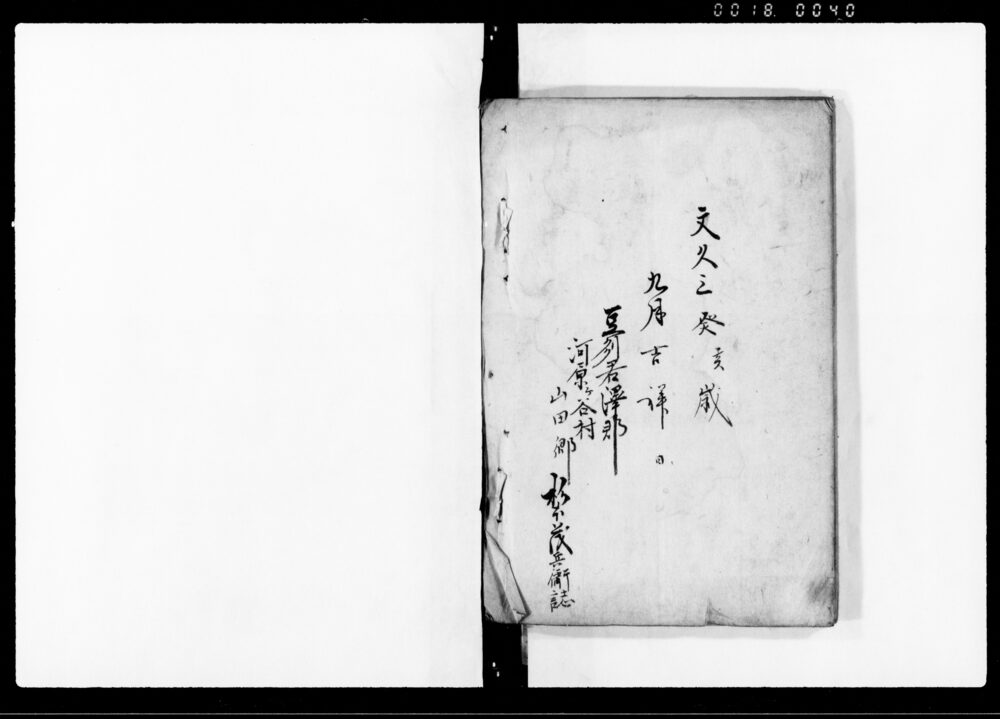 0018 0040
文久三癸亥歳
九月吉祥日
豆州君澤郡
河原ヶ谷村
山田郷
杉下茂兵衛誌